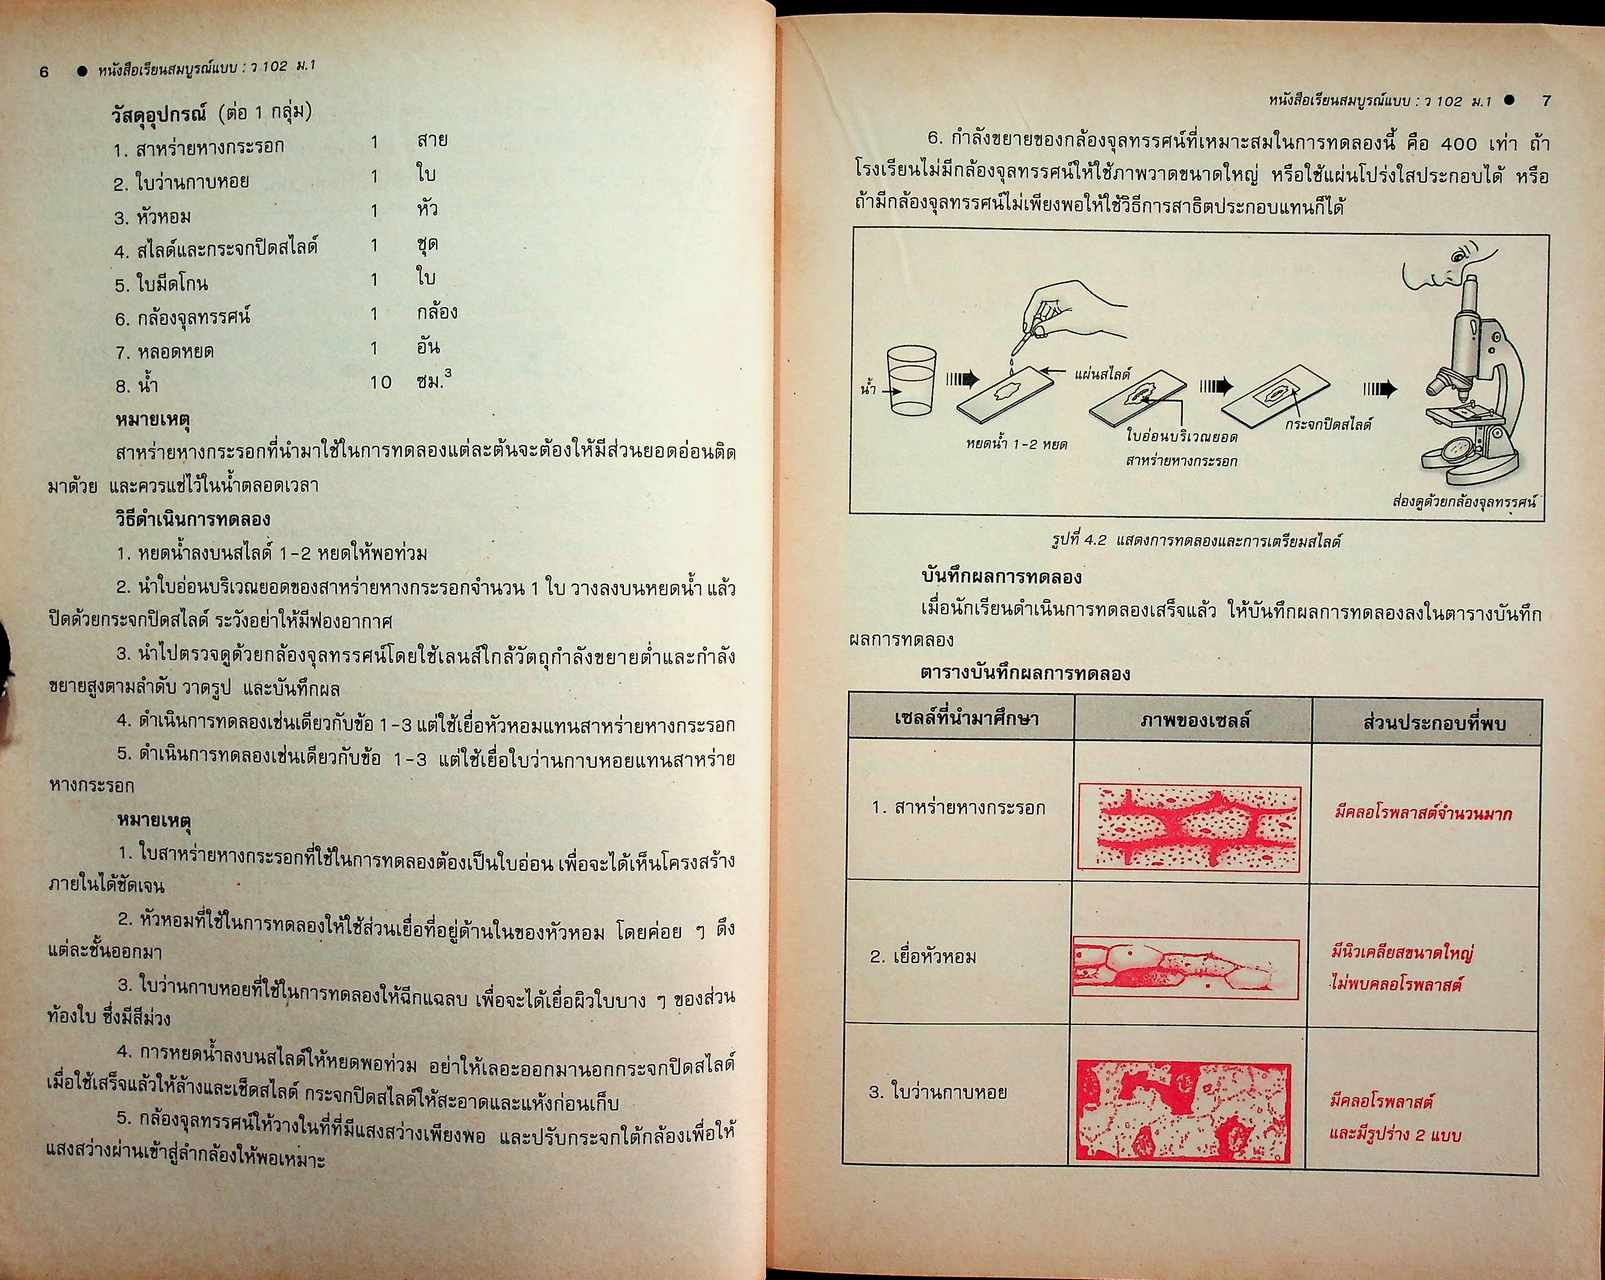 6 ● หนังสือเรียนสมบูรณ์แบบ : ว 102 ม.1
วัสดุอุปกรณ์ (ต่อ 1 กลุ่ม)
1. สาหร่ายหางกระรอก 1 สาย
2. ใบว่านกาบหอย 1 ใบ
3. หัวหอม 1 หัว
4. สไลด์และกระจกปิดสไลด์ 1 ชุด
5. ใบมีดโกน 1 ใบ
6. กล้องจุลทรรศน์ 1 กล้อง
7. หลอดหยด 1 อัน
8. น้ำ 10 ซม.³
หมายเหตุ
สาหร่ายหางกระรอกที่นำมาใช้ในการทดลองแต่ละต้นจะต้องให้มีส่วนยอดอ่อนติด
มาด้วย และควรแช่ไว้ในน้ำตลอดเวลา
วิธีดำเนินการทดลอง
1. หยดน้ำลงบนสไลด์ 1-2 หยดให้พอท่วม
2. นำใบอ่อนบริเวณยอดของสาหร่ายหางกระรอกจำนวน 1 ใบ วางลงบนหยดน้ำ แล้ว
ปิดด้วยกระจกปิดสไลด์ ระวังอย่าให้มีฟองอากาศ
3. นำไปตรวจดูด้วยกล้องจุลทรรศน์โดยใช้เลนส์ใกล้วัตถุกำลังขยายต่ำและกำลัง
ขยายสูงตามลำดับ วาดรูป และบันทึกผล
4. ดำเนินการทดลองเช่นเดียวกับข้อ 1-3 แต่ใช้เยื่อหัวหอมแทนสาหร่ายหางกระรอก
5. ดำเนินการทดลองเช่นเดียวกับข้อ 1-3 แต่ใช้เยื่อใบว่านกาบหอยแทนสาหร่าย
หางกระรอก
หมายเหตุ
1. ใบสาหร่ายหางกระรอกที่ใช้ในการทดลองต้องเป็นใบอ่อน เพื่อจะได้เห็นโครงสร้าง
ภายในได้ชัดเจน
2. หัวหอมที่ใช้ในการทดลองให้ใช้ส่วนเยื่อที่อยู่ด้านในของหัวหอม โดยค่อย ๆ ดึง
แต่ละชั้นออกมา
3. ใบว่านกาบหอยที่ใช้ในการทดลองให้ฉีกแฉลบ เพื่อจะได้เยื่อผิวใบบาง ๆ ของส่วน
ท้องใบ ซึ่งมีสีม่วง
4. การหยดน้ำลงบนสไลด์ให้หยดพอท่วม อย่าให้เลอะออกมานอกกระจกปิดสไลด์
เมื่อใช้เสร็จแล้วให้ล้างและเช็ดสไลด์ กระจกปิดสไลด์ให้สะอาดและแห้งก่อนเก็บ
5. กล้องจุลทรรศน์ให้วางในที่ที่มีแสงสว่างเพียงพอ และปรับกระจกใต้กล้องเพื่อให้
แสงสว่างผ่านเข้าสู่ลำกล้องให้พอเหมาะ
หนังสือเรียนสมบูรณ์แบบ : ว 102 ม.1 ● 7
6. กำลังขยายของกล้องจุลทรรศน์ที่เหมาะสมในการทดลองนี้ คือ 400 เท่า ถ้า
โรงเรียนไม่มีกล้องจุลทรรศน์ให้ใช้ภาพวาดขนาดใหญ่ หรือใช้แผ่นโปร่งใสประกอบได้ หรือ
ถ้ามีกล้องจุลทรรศน์ไม่เพียงพอให้ใช้วิธีการสาธิตประกอบแทนก็ได้
น้ำ
หยดน้ำ 1-2 หยด
แผ่นสไลด์
ใบอ่อนบริเวณยอด
สาหร่ายหางกระรอก
กระจกปิดสไลด์
ส่องดูด้วยกล้องจุลทรรศน์
รูปที่ 4.2 แสดงการทดลองและการเตรียมสไลด์
บันทึกผลการทดลอง
เมื่อนักเรียนดำเนินการทดลองเสร็จแล้ว ให้บันทึกผลการทดลองลงในตารางบันทึก
ผลการทดลอง
ตารางบันทึกผลการทดลอง
เซลล์ที่นำมาศึกษา ภาพของเซลล์ ส่วนประกอบที่พบ
1. สาหร่ายหางกระรอก มีคลอโรพลาสต์จำนวนมาก
2. เยื่อหัวหอม มีนิวเคลียสขนาดใหญ่
ไม่พบคลอโรพลาสต์
3. ใบว่านกาบหอย มีคลอโรพลาสต์
และมีรูปร่าง 2 แบบ